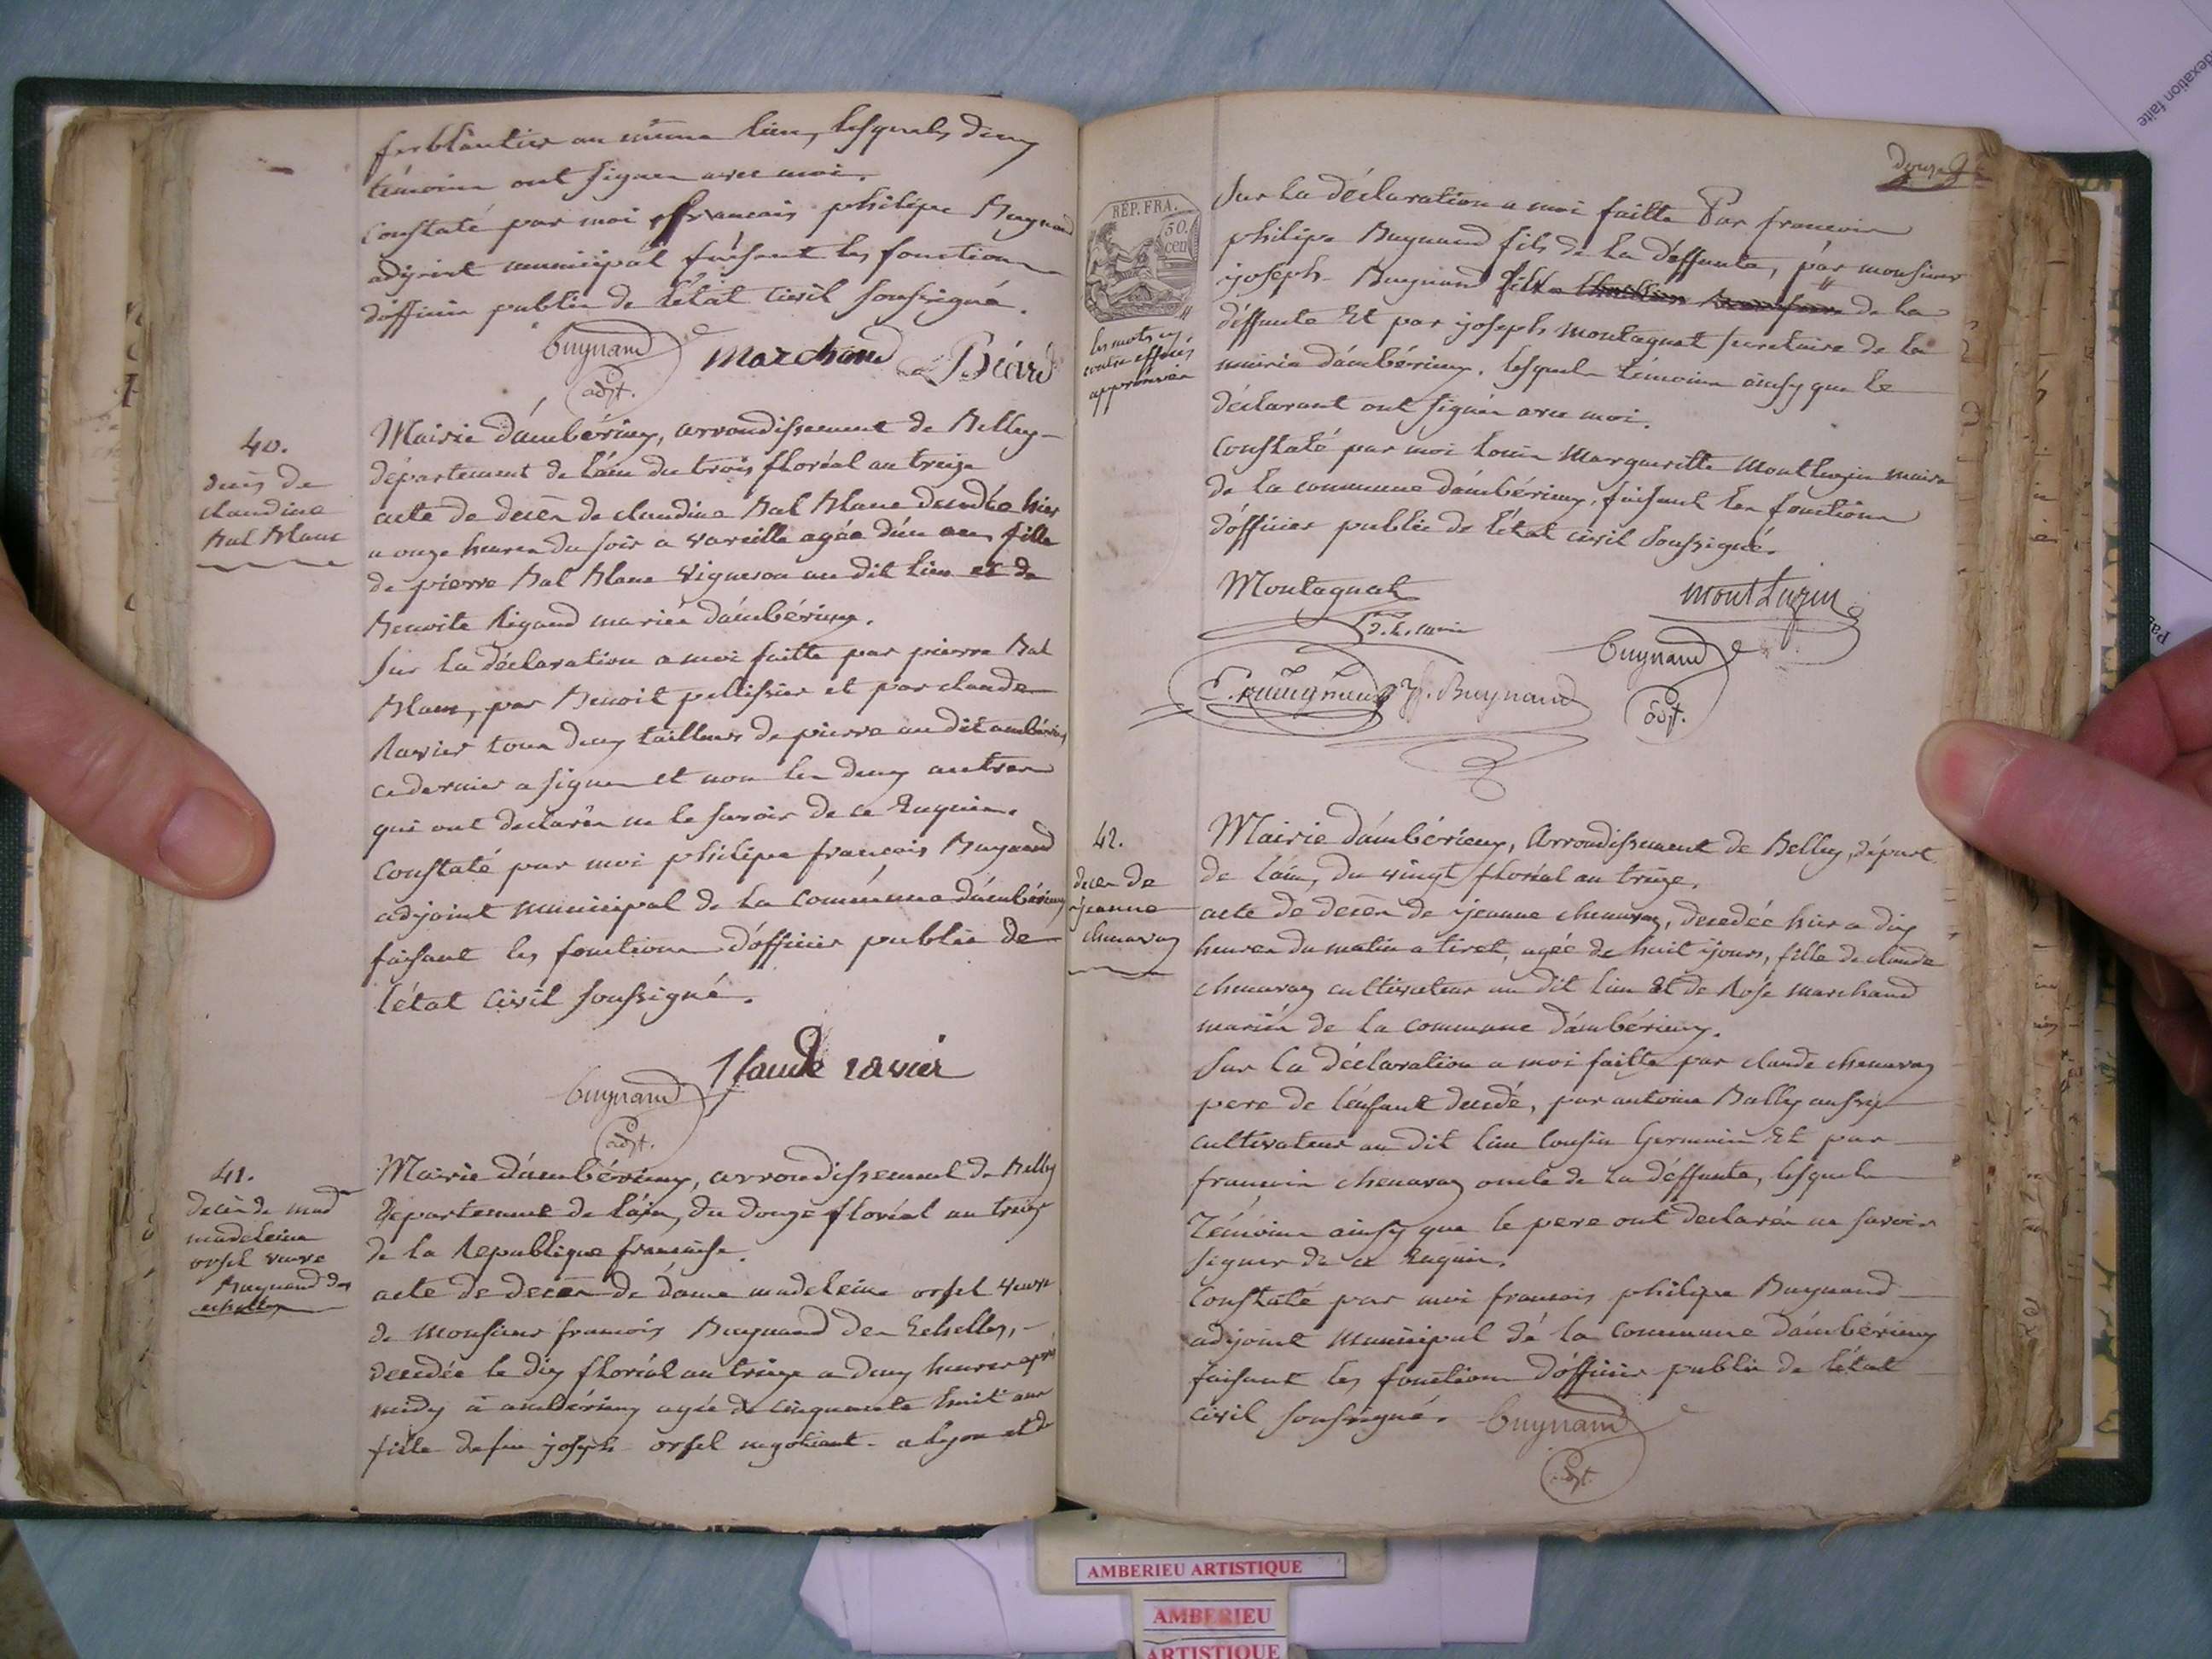 ferblantier au même lieu, lesquels deux
témoins ont signés avec moi.
Constaté par moi francois philipe Buynand
adjoint municipal faisant les fonctions
d'officier public de l'état civil soussigné.
Buynand marchand Béard
adjt.
40.
decès de
claudine
Bal Blanc
Mairie d'ambérieux, arrondissement de Belley
département de l'ain du trois floréal an treize
acte de decès de claudine Bal Blanc decedée hier
a onze heures du soir a vareille agée d'un an, fille
de pierre Bal Blanc vigneron au dit lieu et de
Benoite Rigaud mariés d'ambérieux.
Sur la déclaration a moi faitte par pierre Bal
Blanc, par Benoit pellissier et par claude
Ravier tous deux tailleurs de pierre au dit ambérieux
ce dernier a signer et non les deux autres
qui ont declarés ne le savoir de ce Enquis.
Constaté par moi philipe francois Buynand
adjoint municipal de la commune d'ambérieux
faisant les fonctions d'officier public de
l'état civil soussigné.
Claude ravier
Buynand
adjt.
41.
decès de mad
madeleine
orsel veuve
Buynand des
echelles
Mairie d'ambérieux, arrondissement de Belley
departement de l'ain, du douze floréal an treize
de la Republique francaise.
acte de decès de dame madeleine orsel veuve
de Monsieur francois Buynand des Echelles,
decedée le dix floréal an treize a deux heures après
midy à ambérieux agée de cinquante huit ans
fille de feu joseph orsel negotiant a lyon et de
RÉP. FRA.
50.
cen
les mots cy
contre effacés
approuvés
Sur la déclaration a moi faitte Par francois
philipe Buynand fils de la deffunte, par monsieur
joseph Buynand fils de la
deffunte Et par joseph montagnat secretaire de la
mairie d'ambérieux, lesquels témoins ainsy que le
déclarant ont signés avec moi.
Constaté par moi Louis Margueritte Montluzin maire
de la commune d'ambérieux, faisant les fonctions
d'officier public de l'état civil Soussigné.
Montagnat montluzin
Buynand
J. Buynand
adjt.
42.
decès de
jeanne
chenavaz
Mairie d'ambérieux, Arrondissement de Belley, départ
de l'ain, du vingt floréal an treize.
acte de decès de jeanne chenavaz, decedée hier a dix
heures du matin a tiret, agée de huit jours, fille de claude
chenavaz cultivateur au dit lieu Et de Rose marchand
mariés de la commune d'ambérieux.
Sur la déclaration a moi faitte par claude chenavaz
pere de l'enfant decedé, par antoine Bally aussy
cultivateur au dit lieu Cousin Germain Et par
francois chenavaz oncle de la deffunte, lesquels
Témoins ainsy que le pere ont declarés ne savoir
signer de ce Enquis.
Constaté par moi francois philipe Buynand
adjoint municipal de la commune d'ambérieux
faisant les fonctions d'officier public de l'état
civil soussigné. Buynand
adjt.
AMBERIEU ARTISTIQUE
AMBERIEU
ARTISTIQUE
dexation faite